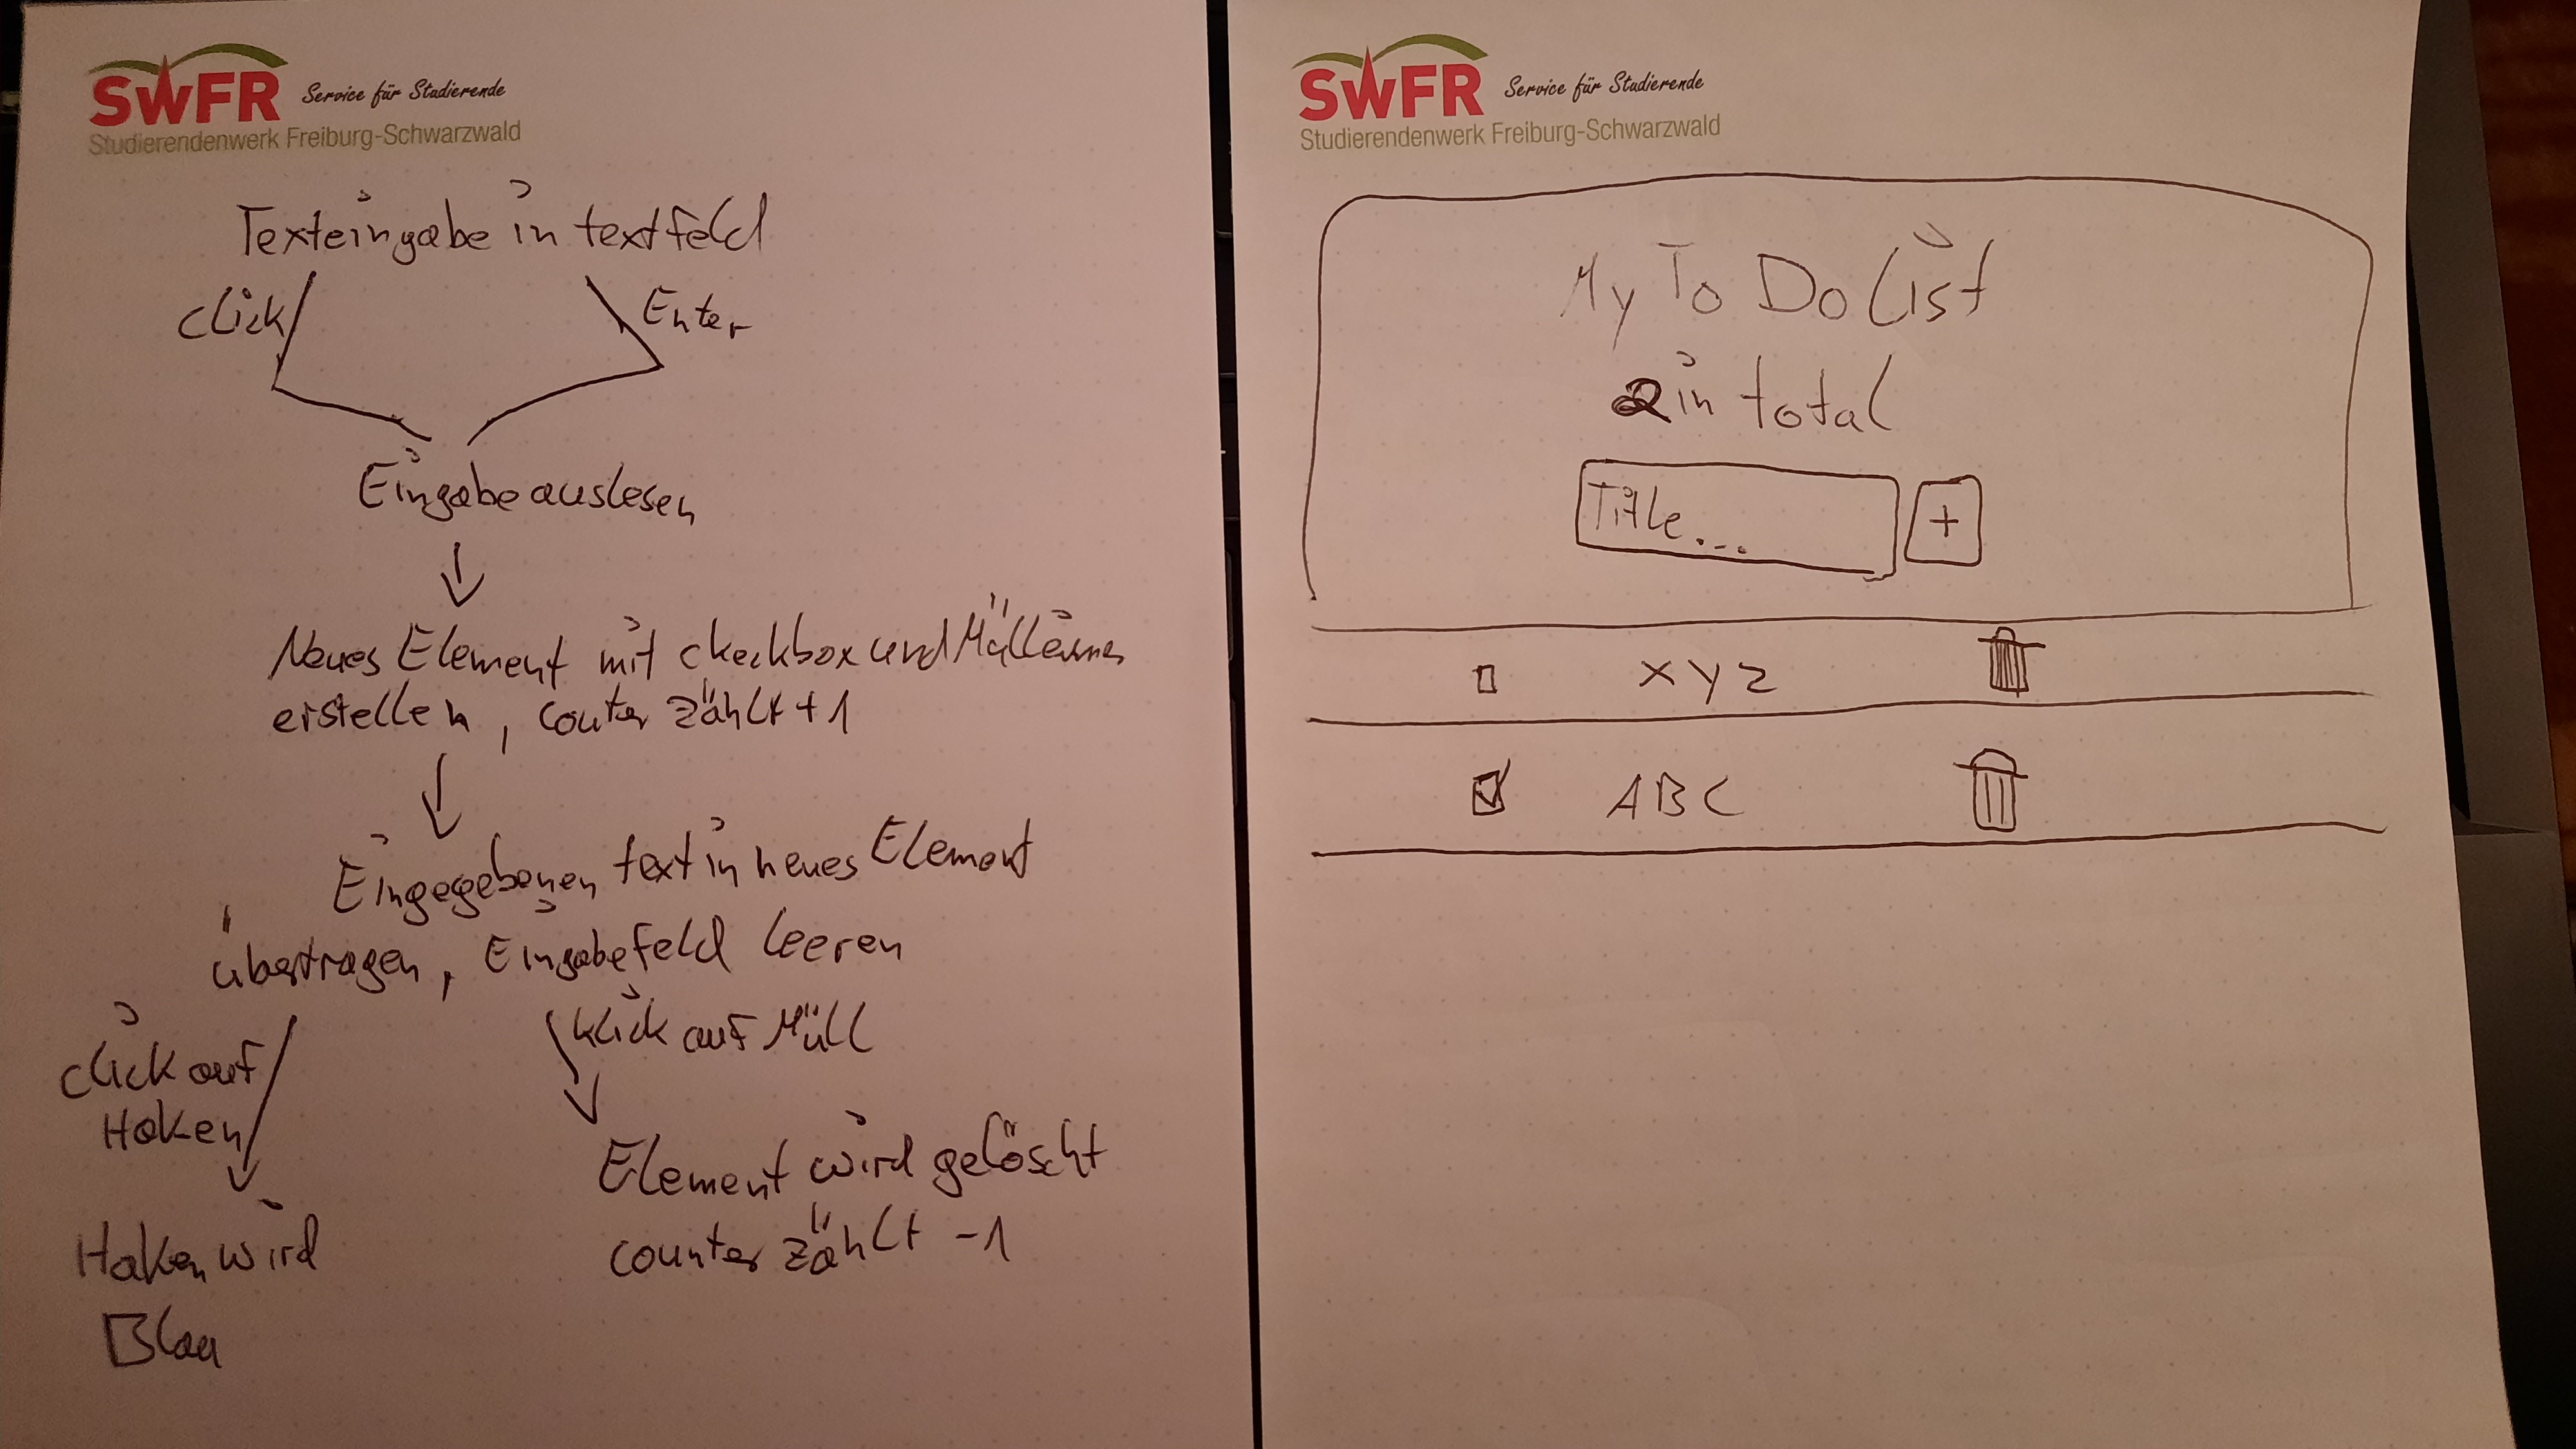 SWFR Service für Studierende
Studierendenwerk Freiburg-Schwarzwald
Texteingabe in textfeld
click
Enter
Eingabe auslesen
Neues Element mit checkbox und Mülleimer
erstellen, couter zählt +1
Eingegebenen text in neues Element
übertragen, Eingabefeld leeren
click auf
Haken
klick auf Müll
Haken wird
Blau
Element wird gelöscht
counter zählt -1
SWFR Service für Studierende
Studierendenwerk Freiburg-Schwarzwald
My To Do List
2 in total
Title...
+
x y z
A B C